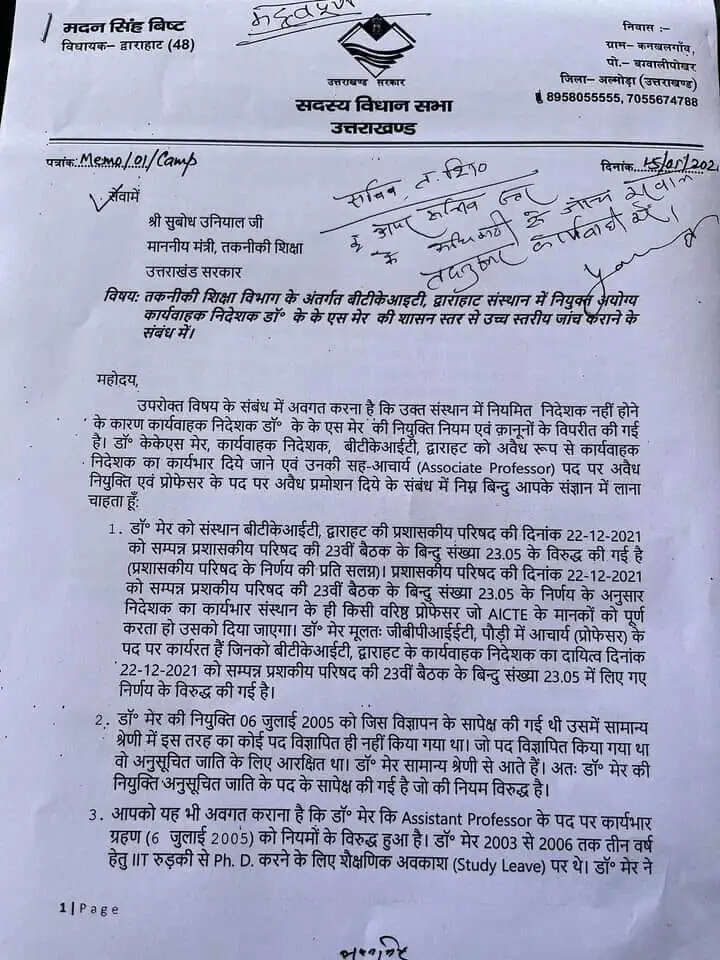 महत्वपूर्ण
मदन सिंह बिष्ट
विधायक– द्वाराहाट (48)
उत्तराखण्ड सरकार
सदस्य विधान सभा
उत्तराखण्ड
निवास :–
ग्राम– कनखलगाँव,
पो.– बग्वालीपोखर
जिला– अल्मोड़ा (उत्तराखण्ड)
8958055555, 7055674788
पत्रांक..Memo/01/Camp
दिनांक..15/01/202
सेवामें
श्री सुबोध उनियाल जी
माननीय मंत्री, तकनीकी शिक्षा
उत्तराखंड सरकार
सचिव, त. शि०
कार्यवाही करें।
विषयः तकनीकी शिक्षा विभाग के अंतर्गत बीटीकेइटी, द्वाराहाट संस्थान में नियुक्त अयोग्य
कार्यवाहक निदेशक डॉ॰ के के एस मेर की शासन स्तर से उच्च स्तरीय जांच कराने के
संबंध में।
महोदय,
उपरोक्त विषय के संबंध में अवगत करना है कि उक्त संस्थान में नियमित निदेशक नहीं होने
के कारण कार्यवाहक निदेशक डॉ॰ के के एस मेर की नियुक्ति नियम एवं क़ानूनों के विपरीत की गई
है। डॉ॰ केकेएस मेर, कार्यवाहक निदेशक, बीटीकेआईटी, द्वाराहट को अवैध रूप से कार्यवाहक
निदेशक का कार्यभार दिये जाने एवं उनकी सह-आचार्य (Associate Professor) पद पर अवैध
नियुक्ति एवं प्रोफेसर के पद पर अवैध प्रमोशन दिये के संबंध में निम्न बिन्दु आपके संज्ञान में लाना
चाहता हूँः
1. डॉ॰ मेर को संस्थान बीटीकेआईटी, द्वाराहट की प्रशासकीय परिषद की दिनांक 22-12-2021
को सम्पन्न प्रशासकीय परिषद की 23वीं बैठक के बिन्दु संख्या 23.05 के विरुद्ध की गई है
(प्रशासकीय परिषद के निर्णय की प्रति सलग्न)। प्रशासकीय परिषद की दिनांक 22-12-2021
को सम्पन्न प्रशकीय परिषद की 23वीं बैठक के बिन्दु संख्या 23.05 के निर्णय के अनुसार
निदेशक का कार्यभार संस्थान के ही किसी वरिष्ठ प्रोफेसर जो AICTE के मानकों को पूर्ण
करता हो उसको दिया जाएगा। डॉ॰ मेर मूलतः जीबीपीआईईटी, पौड़ी में आचार्य (प्रोफेसर) के
पद पर कार्यरत हैं जिनको बीटीकेआईटी, द्वाराहट के कार्यवाहक निदेशक का दायित्व दिनांक
22-12-2021 को सम्पन्न प्रशकीय परिषद की 23वीं बैठक के बिन्दु संख्या 23.05 में लिए गए
निर्णय के विरुद्ध की गई है।
2. डॉ॰ मेर की नियुक्ति 06 जुलाई 2005 को जिस विज्ञापन के सापेक्ष की गई थी उसमें सामान्य
श्रेणी में इस तरह का कोई पद विज्ञापित ही नहीं किया गया था। जो पद विज्ञापित किया गया था
वो अनुसूचित जाति के लिए आरक्षित था। डॉ॰ मेर सामान्य श्रेणी से आते हैं। अतः डॉ॰ मेर की
नियुक्ति अनुसूचित जाति के पद के सापेक्ष की गई है जो की नियम विरुद्ध है।
3. आपको यह भी अवगत कराना है कि डॉ॰ मेर कि Assistant Professor के पद पर कार्यभार
ग्रहण (6 जुलाई 2005) को नियमों के विरुद्ध हुआ है। डॉ॰ मेर 2003 से 2006 तक तीन वर्ष
हेतु IIT रुड़की से Ph. D. करने के लिए शैक्षणिक अवकाश (Study Leave) पर थे। डॉ॰ मेर ने
1 | Page